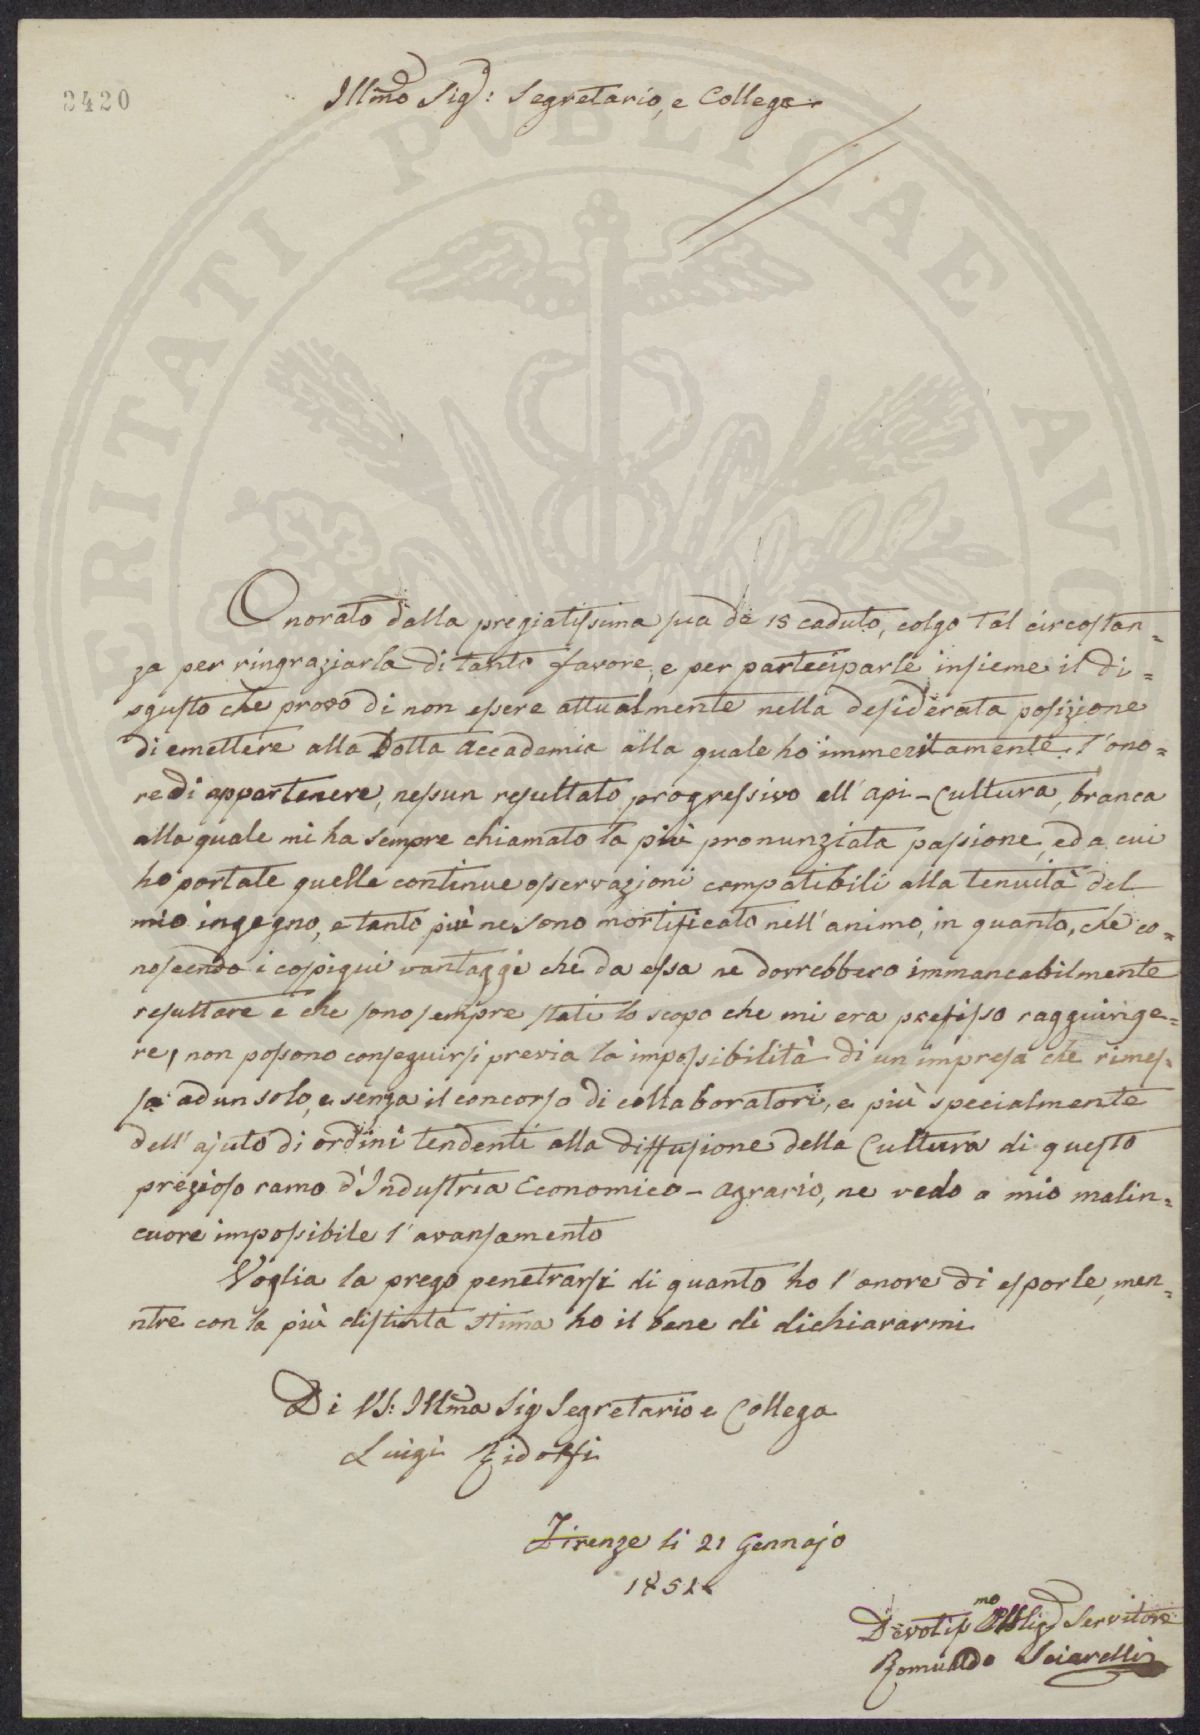 2420
Illmo Sigr: Segretario, e Collega
PVBLICAE
Onorato dalla pregiatissima sua de 15 caduto, colgo tal circostan=
za per ringraziarla di tanto favore, e per partecciparle insieme il di=
sgusto che provo di non essere attualmente nella desiderata posizione
di emettere alla Dotta Accademia alla quale ho immeritamente l'ono=
re di appartenere, nessun resultato progressivo all'api-Cultura, branca
alla quale mi ha sempre chiamato la più pronunziata passione, ed a cui
ho portate quelle continue osservazioni compatibili alla tenuità del
mio ingegno, e tanto più ne sono mortificato nell'animo, in quanto, che co=
noscendo i cospiqui vantaggi che da essa ne dovrebbero immancabilmente
resultare e che sono sempre stati lo scopo che mi era prefisso ragguinge=
re, non possono conseguirsi previa la impossibilità di un impresa che rimes=
sa ad un solo, e senza il concorso di collaboratori, e più specialmente
dell'ajuto di ordini tendenti alla diffusione della Cultura di questo
prezioso ramo d'Industria Economico-agrario, ne vedo a mio malin=
cuore impossibile l'avansamento
Voglia la prego penetrarsi di quanto ho l'onore di esporle, men=
ntre con la più distinta stima ho il bene di dichiararmi
Di VS: Illma Sig Segretario e Collega
Luigi Ridolfi
Firenze li 21 Gennajo
185
Devotiss Obbligmo Servitore
Romualdo Sciarelli